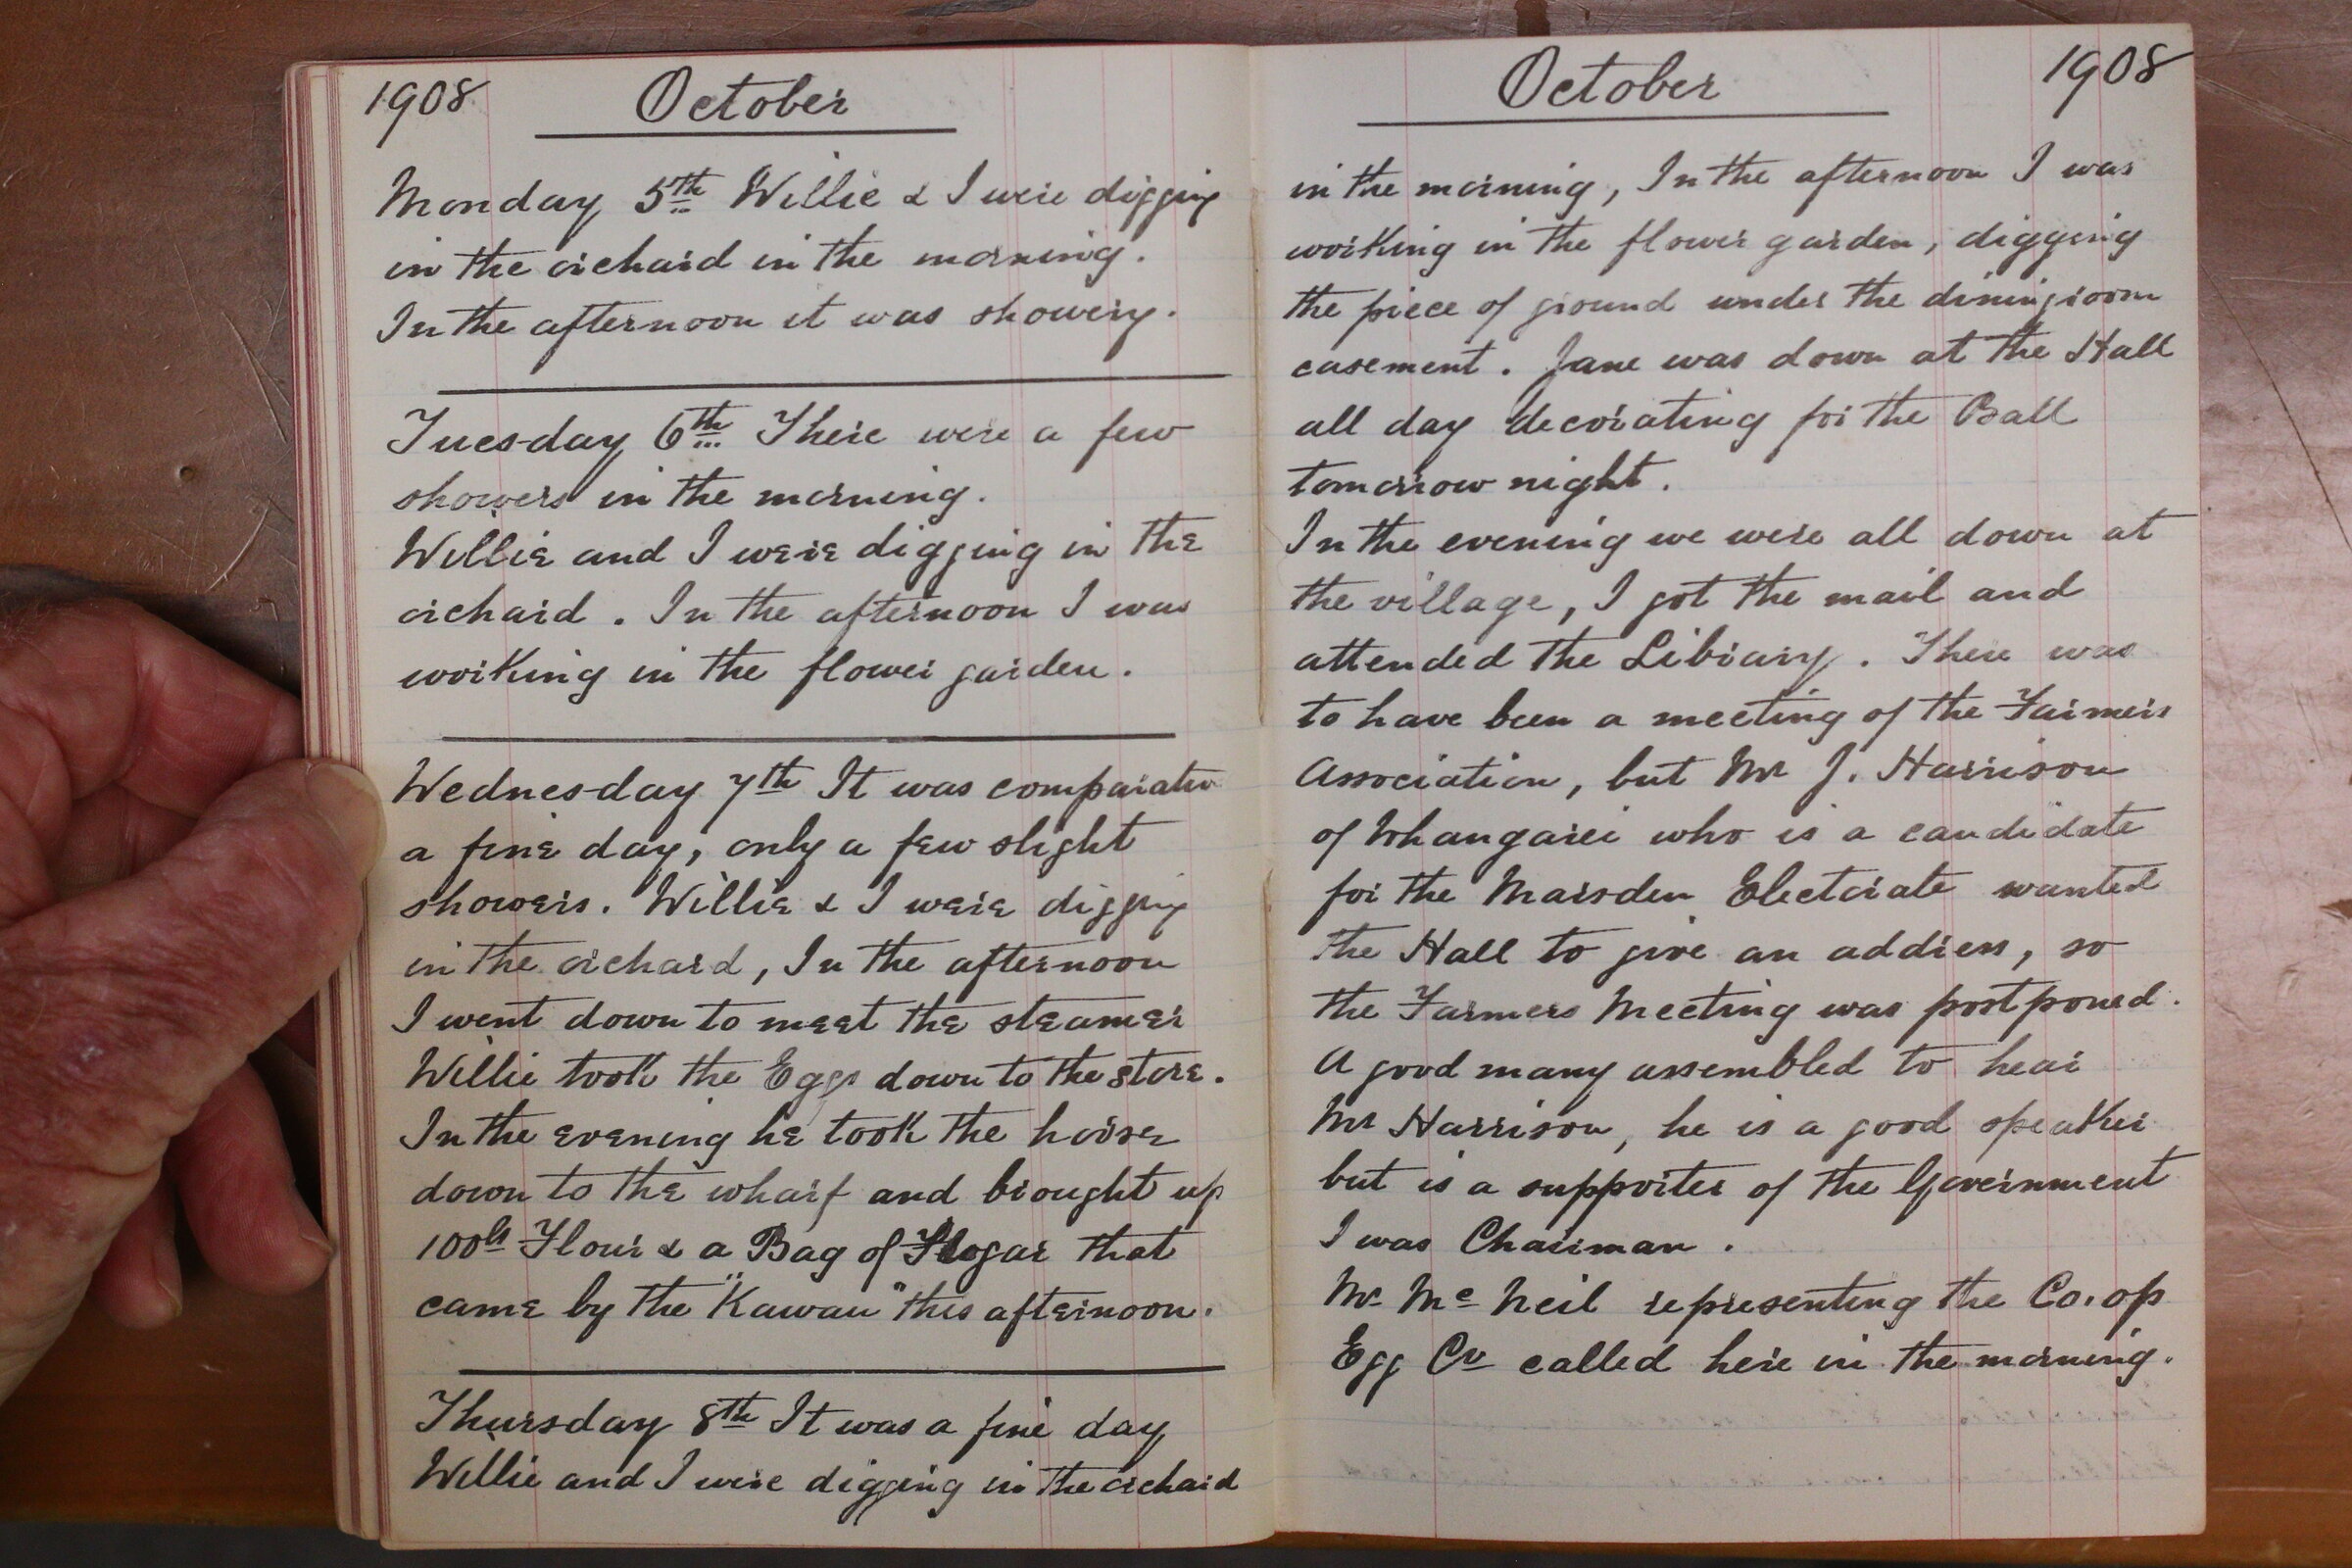 1908 October
Monday 5th Willie & I were digging
in the orchard in the morning.
In the afternoon it was showery.
Tuesday 6th There were a few
showers in the morning.
Willie and I were digging in the
orchard. In the afternoon I was
working in the flower garden.
Wednesday 7th It was comparativ
a fine day, only a few slight
showers. Willie & I were digging
in the orchard, In the afternoon
I went down to meet the steamer
Willie took the Eggs down to the store.
In the evening he took the horse
down to the wharf and brought up
100lb Flour & a Bag of that
came by the "Kawau" this afternoon.
Thursday 8th It was a fine day
Willie and I were digging in the orchard
October 1908
in the morning, In the afternoon I was
working in the flower garden, digging
the piece of ground under the diningroom
casement. Jane was down at the Hall
all day decorating for the Ball
tomorrow night.
In the evening we were all down at
the village, I got the mail and
attended the Library. There was
to have been a meeting of the Farmers
Association, but Mr J. Harrison
of Whangarei who is a candidate
for the Marsden Electorate wanted
the Hall to give an address, so
the Farmers Meeting was postponed.
A good many assembled to hear
Mr Harrison, he is a good speaker
but is a supporter of the Government
I was Chairman.
Mr McNeil representing the Co.op
Egg Co called here in the morning.